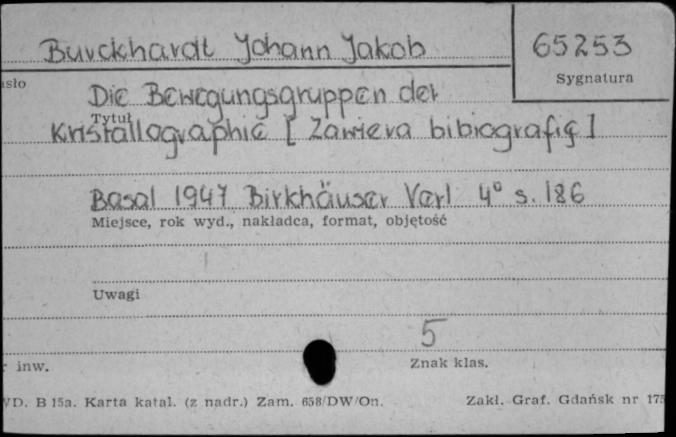 Burckhardt Johann Jakob 65253
asło
Sygnatura
Die Bewegungsgruppen der
Tytuł
Kristallographie [ Zawiera bibiografię ]
Basal 1947 Birkhäuser Verl 4° s. 186
Miejsce, rok wyd., nakładca, format, objętość
Uwagi
5
r inw.
Znak klas.
WD. B 15a. Karta katal. (z nadr.) Zam. 658/DW/On. Zakł. Graf. Gdańsk nr 175